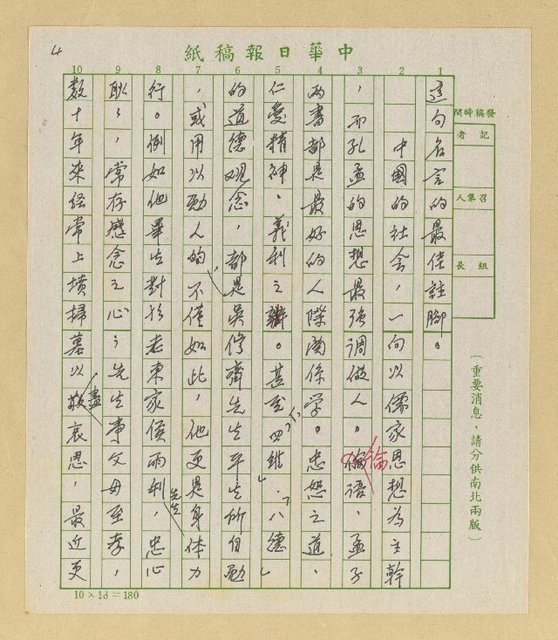 4
中華日報稿紙
1 2 3 4 5 6 7 8 9 10
發稿時間
記者
召集人
組長
(重要消息,請分供南北兩版)
這句名言的最佳註腳。
中國的社會,一向以儒家思想為主幹
,而孔孟的思想最強調做人。論語、孟子
兩書都是最好的人際關係學。忠恕之道、
仁愛精神、義利之辨。甚至「四維」、「八德」
的道德观念,都是吳修齊先生平生所自勵
,或用以勉人的。不僅如此,他更是身体力
行。例如他畢生對於老東家侯雨利先生,忠心
耿耿,常存感念之心;先生事父母至孝,
数十年來経常上墳掃墓以盡哀思,最近更
10×18=180